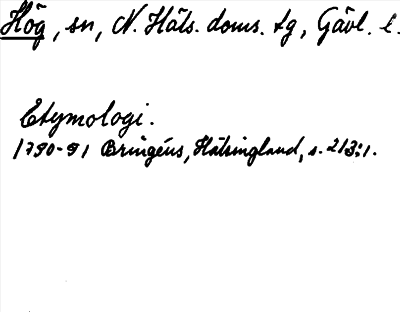 Hög, sn, N. Häls. doms. tg, Gävl. l.
Etymologi.
1790-91 Bringéus, Hälsingland, s. 213:1.